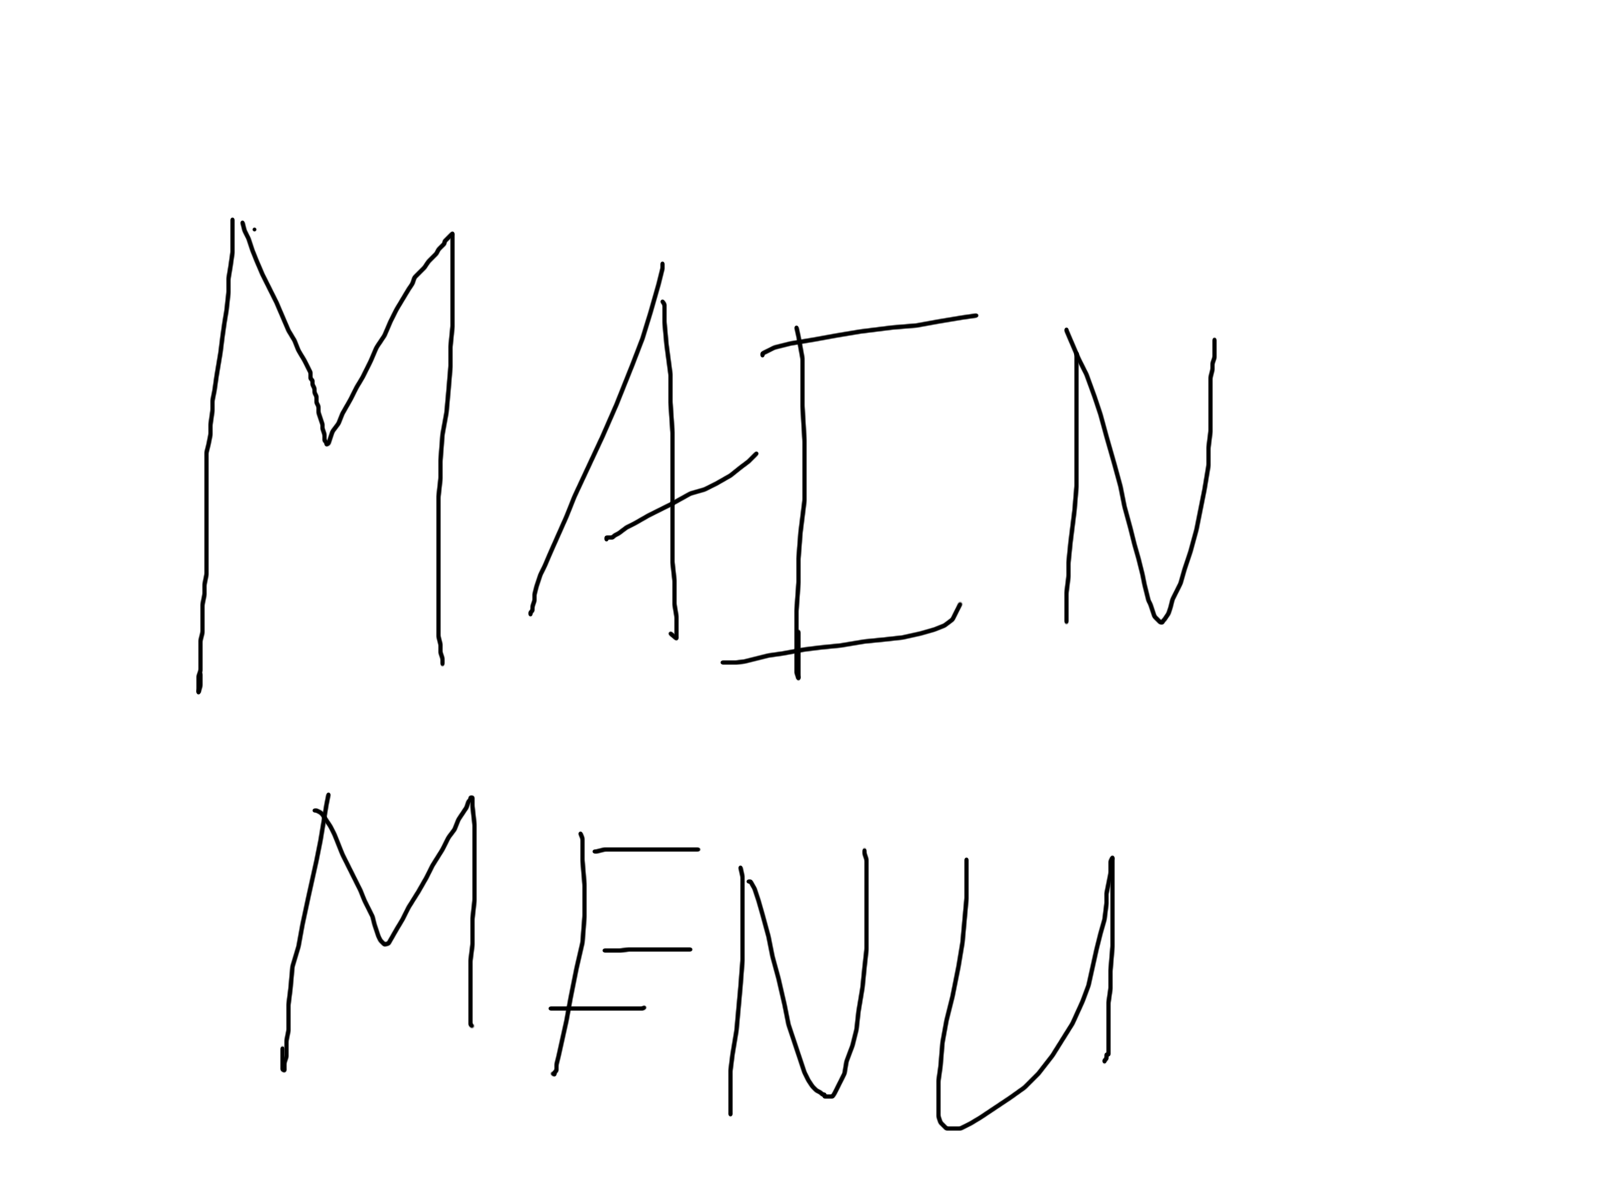 MAIN
MENU